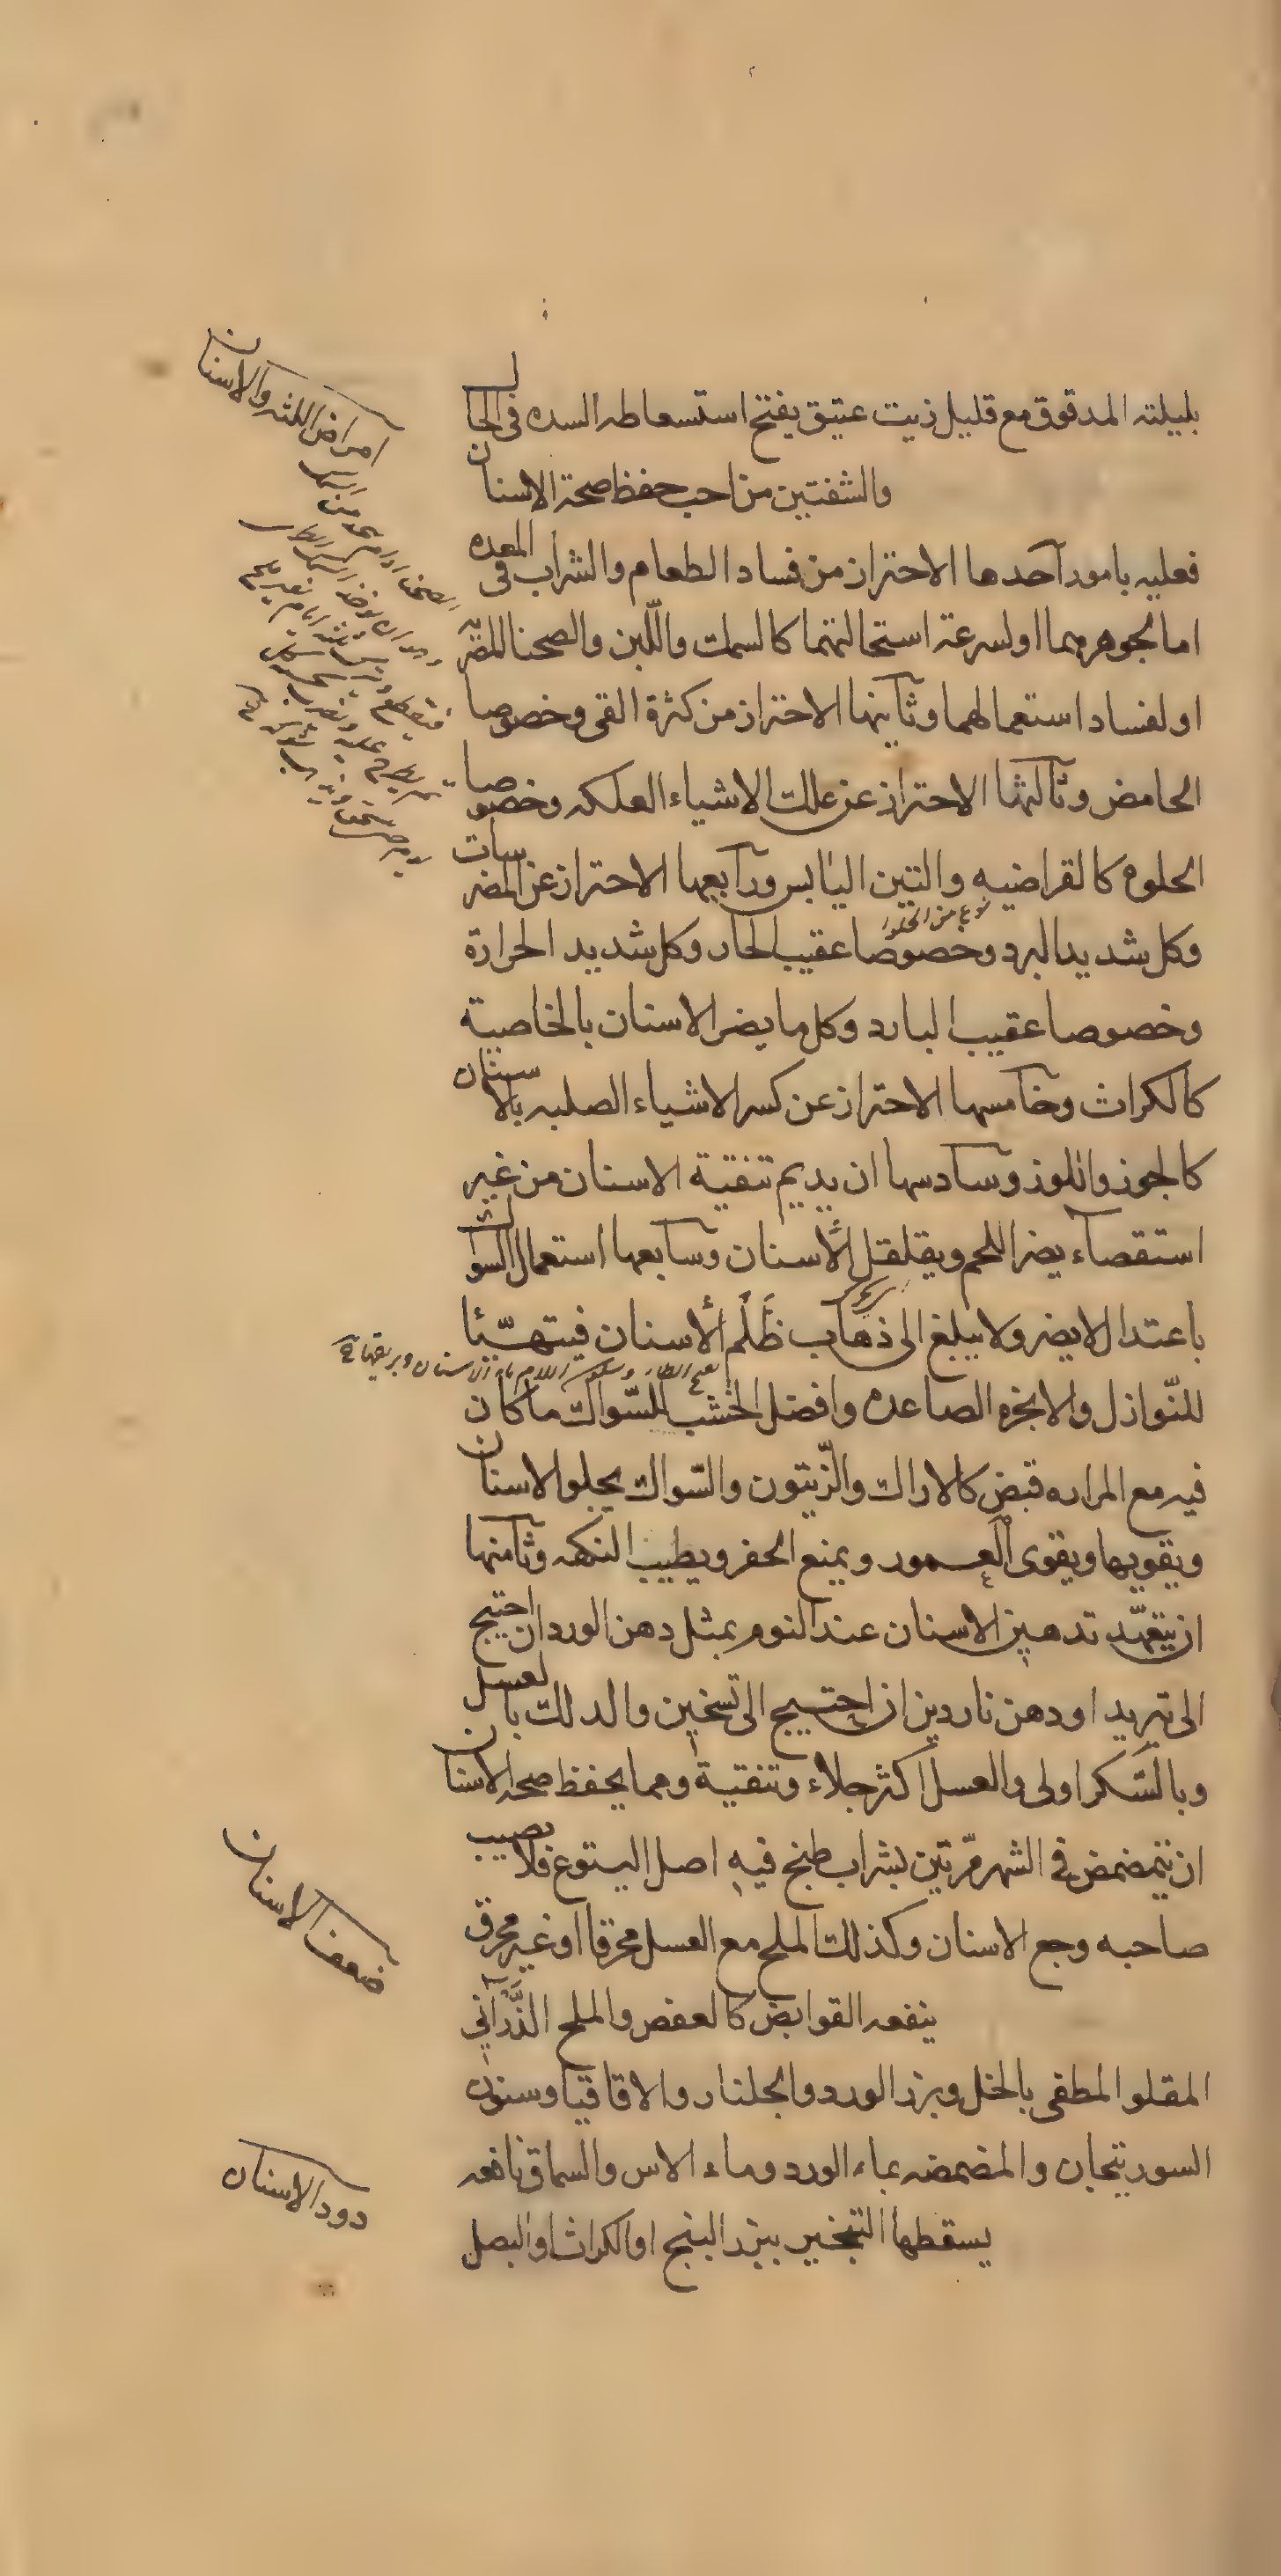 بليلته المدقوق مع قليل زيت عتيق يفتح استسعاطه السده فى الحال
والشفتين من احب حفظ صحة الاسنان
فعليه بامور احدها الاحتراز من فساد الطعام والشراب فى المعده
اما لجوهرهما او لسرعة استحالتهما كالسمك واللّبن والصحنا المضرّ به
او لفساد استعمالهما وثانيها الاحتراز من كثرة القى وخصوصا
الحامض وثالثها الاحتراز عن علك الاشياء العلكه وخصوصا
الحلوه كالقراضيه والتين اليابس ورابعها الاحتراز عن المضرسات
نوع من الحلوا
وكل شديد البرد وخصوصا عقيب الحار وكل شديد الحرارة
وخصوصا عقيب البارد وكل ما يضر الاسنان بالخاصية
كالكراث وخامسها الاحتراز عن كسر الاشياء الصلبه بالاسنان
كالجوز واللوز وسادسها ان يديم تنقية الاسنان من غير
استقصاء يضر اللحم ويقلقل الأسنان وسابعها استعمال السواك
باعتدال لا يضر ولا يبلغ الى ذهاب ظَلْم الأسنان فيتهيّئا
بفتح الظاء وسكون اللام ماء الاسنان وبريقها
للنّوازل والابخره الصاعده وافضل الخشب للسّواك ما كان
فيه مع المراره قبض كالاراك والزّيتون والسّواك يجلو الاسنان
ويقويها ويقوى العمور ويمنع الحفر ويطيب النكهه وثامنها
ان يتعهّد تدهين الاسنان عند النوم بمثل دهن الورد ان احتيج
الى تبريد او دهن ناردين ان احتيج الى تسخين والدلك بالعسل
وبالسّكر اولى والعسل اكثر جلاء وتنقية ومما يحفظ صحه الاسنان
ان يتمضمض فى الشهر مرّتين بشراب طبخ فيه اصل اليتوع فلا يصيب
صاحبه وجع الاسنان وكذلك الملح مع العسل محرقا او غير محرق
ينفعه القوابض كالعفص والملح الذَّرآنى
المقلو المطفى بالخل وبزر الورد والجلنار والاقاقيا وسنون
السورنجان والمضمضه بماء الورد وماء الاس والسماق نافعه
يسقطها التبخير ببزر البنج او الكراث او البصل
امراض اللثه والاسنان
ضعف الاسنان
دود الاسنان